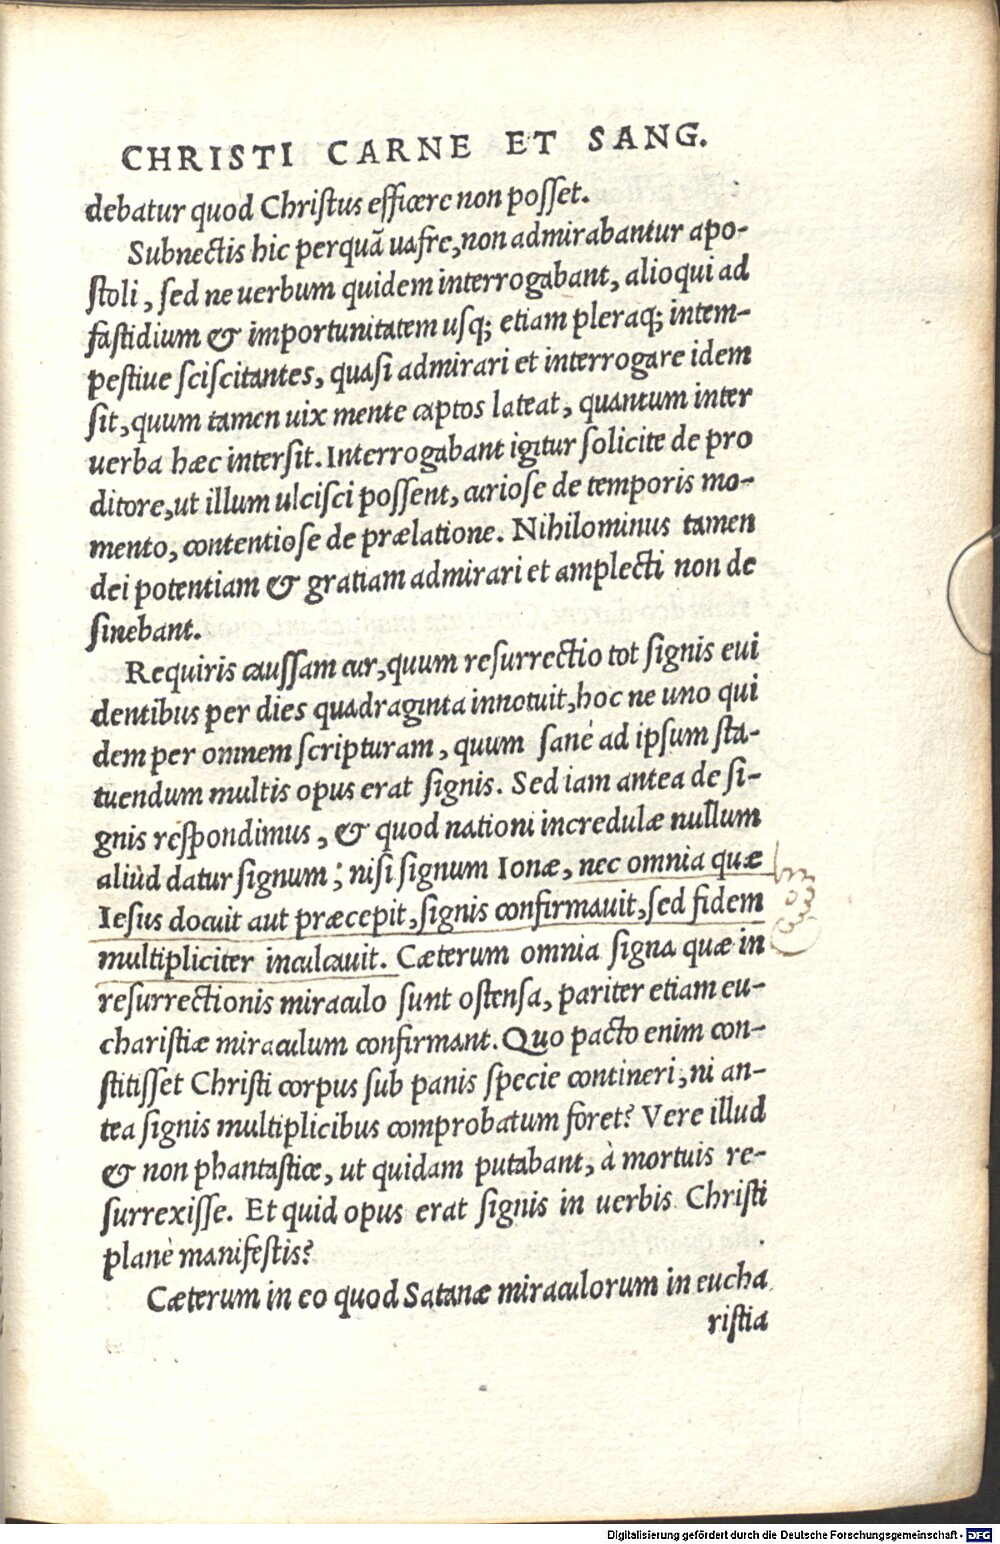 CHRISTI CARNE ET SANG.
debatur quod Christus efficere non posset.
Subnectis hic perquā uafre, non admirabantur apo-
stoli, sed ne uerbum quidem interrogabant, alioqui ad
fastidium & importunitatem usq; etiam pleraq; intem-
pestiue sciscitantes, quasi admirari et interrogare idem
sit, quum tamen uix mente captos lateat, quantum inter
uerba hæc intersit. Interrogabant igitur solicite de pro
ditore, ut illum ulcisci possent, curiose de temporis mo-
mento, contentiose de prælatione. Nihilominus tamen
dei potentiam & gratiam admirari et amplecti non de
sinebant.
Requiris caussam cur, quum resurrectio tot signis eui
dentibus per dies quadraginta innotuit, hoc ne uno qui
dem per omnem scripturam, quum sanè ad ipsum sta-
tuendum multis opus erat signis. Sed iam antea de si-
gnis respondimus, & quod nationi incredulæ nullum
aliùd datur signum; nisi signum Ionæ, nec omnia quæ
Iesus docuit aut præcepit, signis confirmauit, sed fidem
multipliciter inculcauit. Cæterum omnia signa quæ in
resurrectionis miraculo sunt ostensa, pariter etiam eu-
charistiæ miraculum confirmant. Quo pacto enim con-
stitisset Christi corpus sub panis specie contineri, ni an-
tea signis multiplicibus comprobatum foret? Vere illud
& non phantastice, ut quidam putabant, à mortuis re-
surrexisse. Et quid opus erat signis in uerbis Christi
planè manifestis?
Cæterum in eo quod Satanæ miraculorum in eucha
ristia
Digitalisierung gefördert durch die Deutsche Forschungsgemeinschaft - DFG